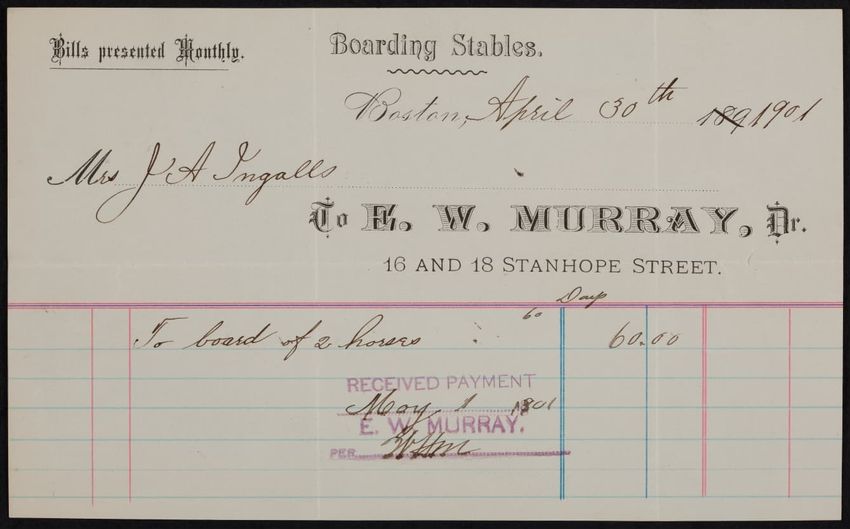 Bills presented Monthly.
Boarding Stables.
Boston, April 30th 1891901
Mrs J A Ingalls
To E. W. MURRAY, Dr.
16 AND 18 STANHOPE STREET.
60 Days
To board of 2 horses 60.00
RECEIVED PAYMENT
May 1 1901
E. W. MURRAY.
PER